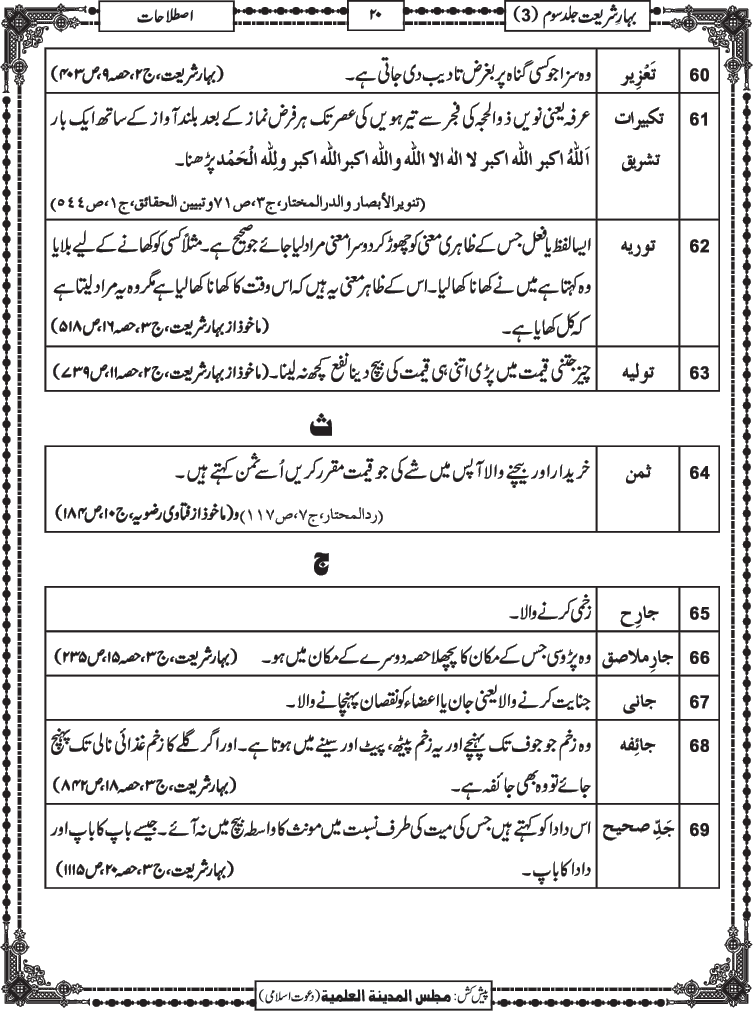 بہارِ شریعت جلد سوم (3) ۲۰ اصطلاحات
60 تَعْزِیر وہ سزا جو کسی گناہ پر بغرض تادیب دی جاتی ہے۔ (بہار شریعت، ج۲، حصہ ۹، ص۴۰۳)
61 تکبیرات تشریق عرفہ یعنی نویں ذوالحجہ کی فجر سے تیرھویں کی عصر تک ہر فرض نماز کے بعد بلند آواز کے ساتھ ایک بار
اَللّٰہُ اکبر اللّٰہ اکبر لا الٰہ الا اللّٰہ واللّٰہ اکبر اللّٰہ اکبر وللّٰہ الْحَمْد پڑھنا۔
(تنویر الأبصار والدرالمختار، ج۳، ص۷۱ و تبیین الحقائق، ج۱، ص٥٤٤)
62 توریہ ایسا لفظ یا فعل جس کے ظاہری معنی کو چھوڑ کر دوسرا معنی مراد لیا جائے جو صحیح ہے۔ مثلاً کسی کو کھانے کے لیے بلایا
وہ کہتا ہے میں نے کھانا کھالیا۔ اس کے ظاہر معنی یہ ہیں کہ اس وقت کا کھانا کھالیا ہے مگر وہ یہ مراد لیتا ہے
کہ کل کھایا ہے۔ (ماخوذ از بہار شریعت، ج۳، حصہ ۱۶، ص۵۱۸)
63 تولیہ چیز جتنی قیمت میں پڑی اتنی ہی قیمت کی بیچ دینا نفع کچھ نہ لینا۔ (ماخوذ از بہار شریعت، ج۲، حصہ ۱۱، ص۷۳۹)
ث
64 ثمن خریدار اور بیچنے والا آپس میں شے کی جو قیمت مقرر کریں اُسے ثمن کہتے ہیں۔
(ردالمحتار، ج۷، ص۱۱۷) و (ماخوذ از فتاوی رضویہ، ج۱۰، ص۱۸۴)
ج
65 جارِح زخمی کرنے والا۔
66 جارِ ملاصق وہ پڑوسی جس کے مکان کا پچھلا حصہ دوسرے کے مکان میں ہو۔ (بہار شریعت، ج۳، حصہ ۱۵، ص۲۳۵)
67 جانی جنایت کرنے والا یعنی جان یا اعضاء کو نقصان پہنچانے والا۔
68 جائِفہ وہ زخم جو جوف تک پہنچے اور یہ زخم پیٹھ، پیٹ اور سینے میں ہوتا ہے۔ اور اگر گلے کا زخم غذائی نالی تک پہنچ
جائے تو وہ بھی جائفہ ہے۔ (بہار شریعت، ج۳، حصہ ۱۸، ص۸۴۲)
69 جَدِّ صحیح اس دادا کو کہتے ہیں جس کی میت کی طرف نسبت میں مونث کا واسطہ بیچ میں نہ آئے۔ جیسے باپ کا باپ اور
دادا کا باپ۔ (بہار شریعت، ج۳، حصہ ۲۰، ص۱۱۱۵)
پیش کش: مجلس المدینۃ العلمیۃ (دعوت اسلامی)